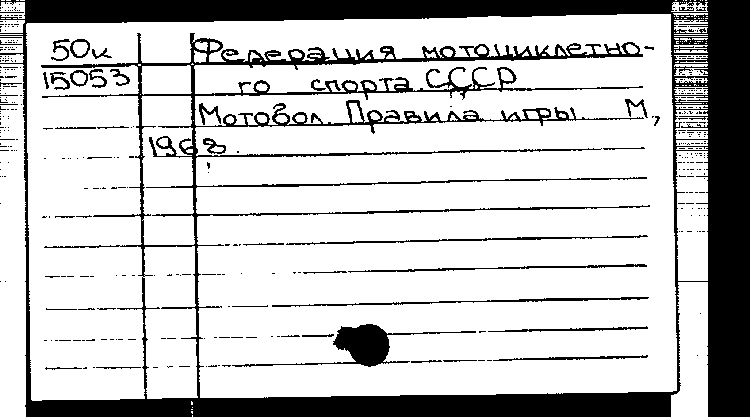 50к Федерация мотоциклетно-
15053 го спорта СССР
Мотобол. Правила игры. М.,
1968.